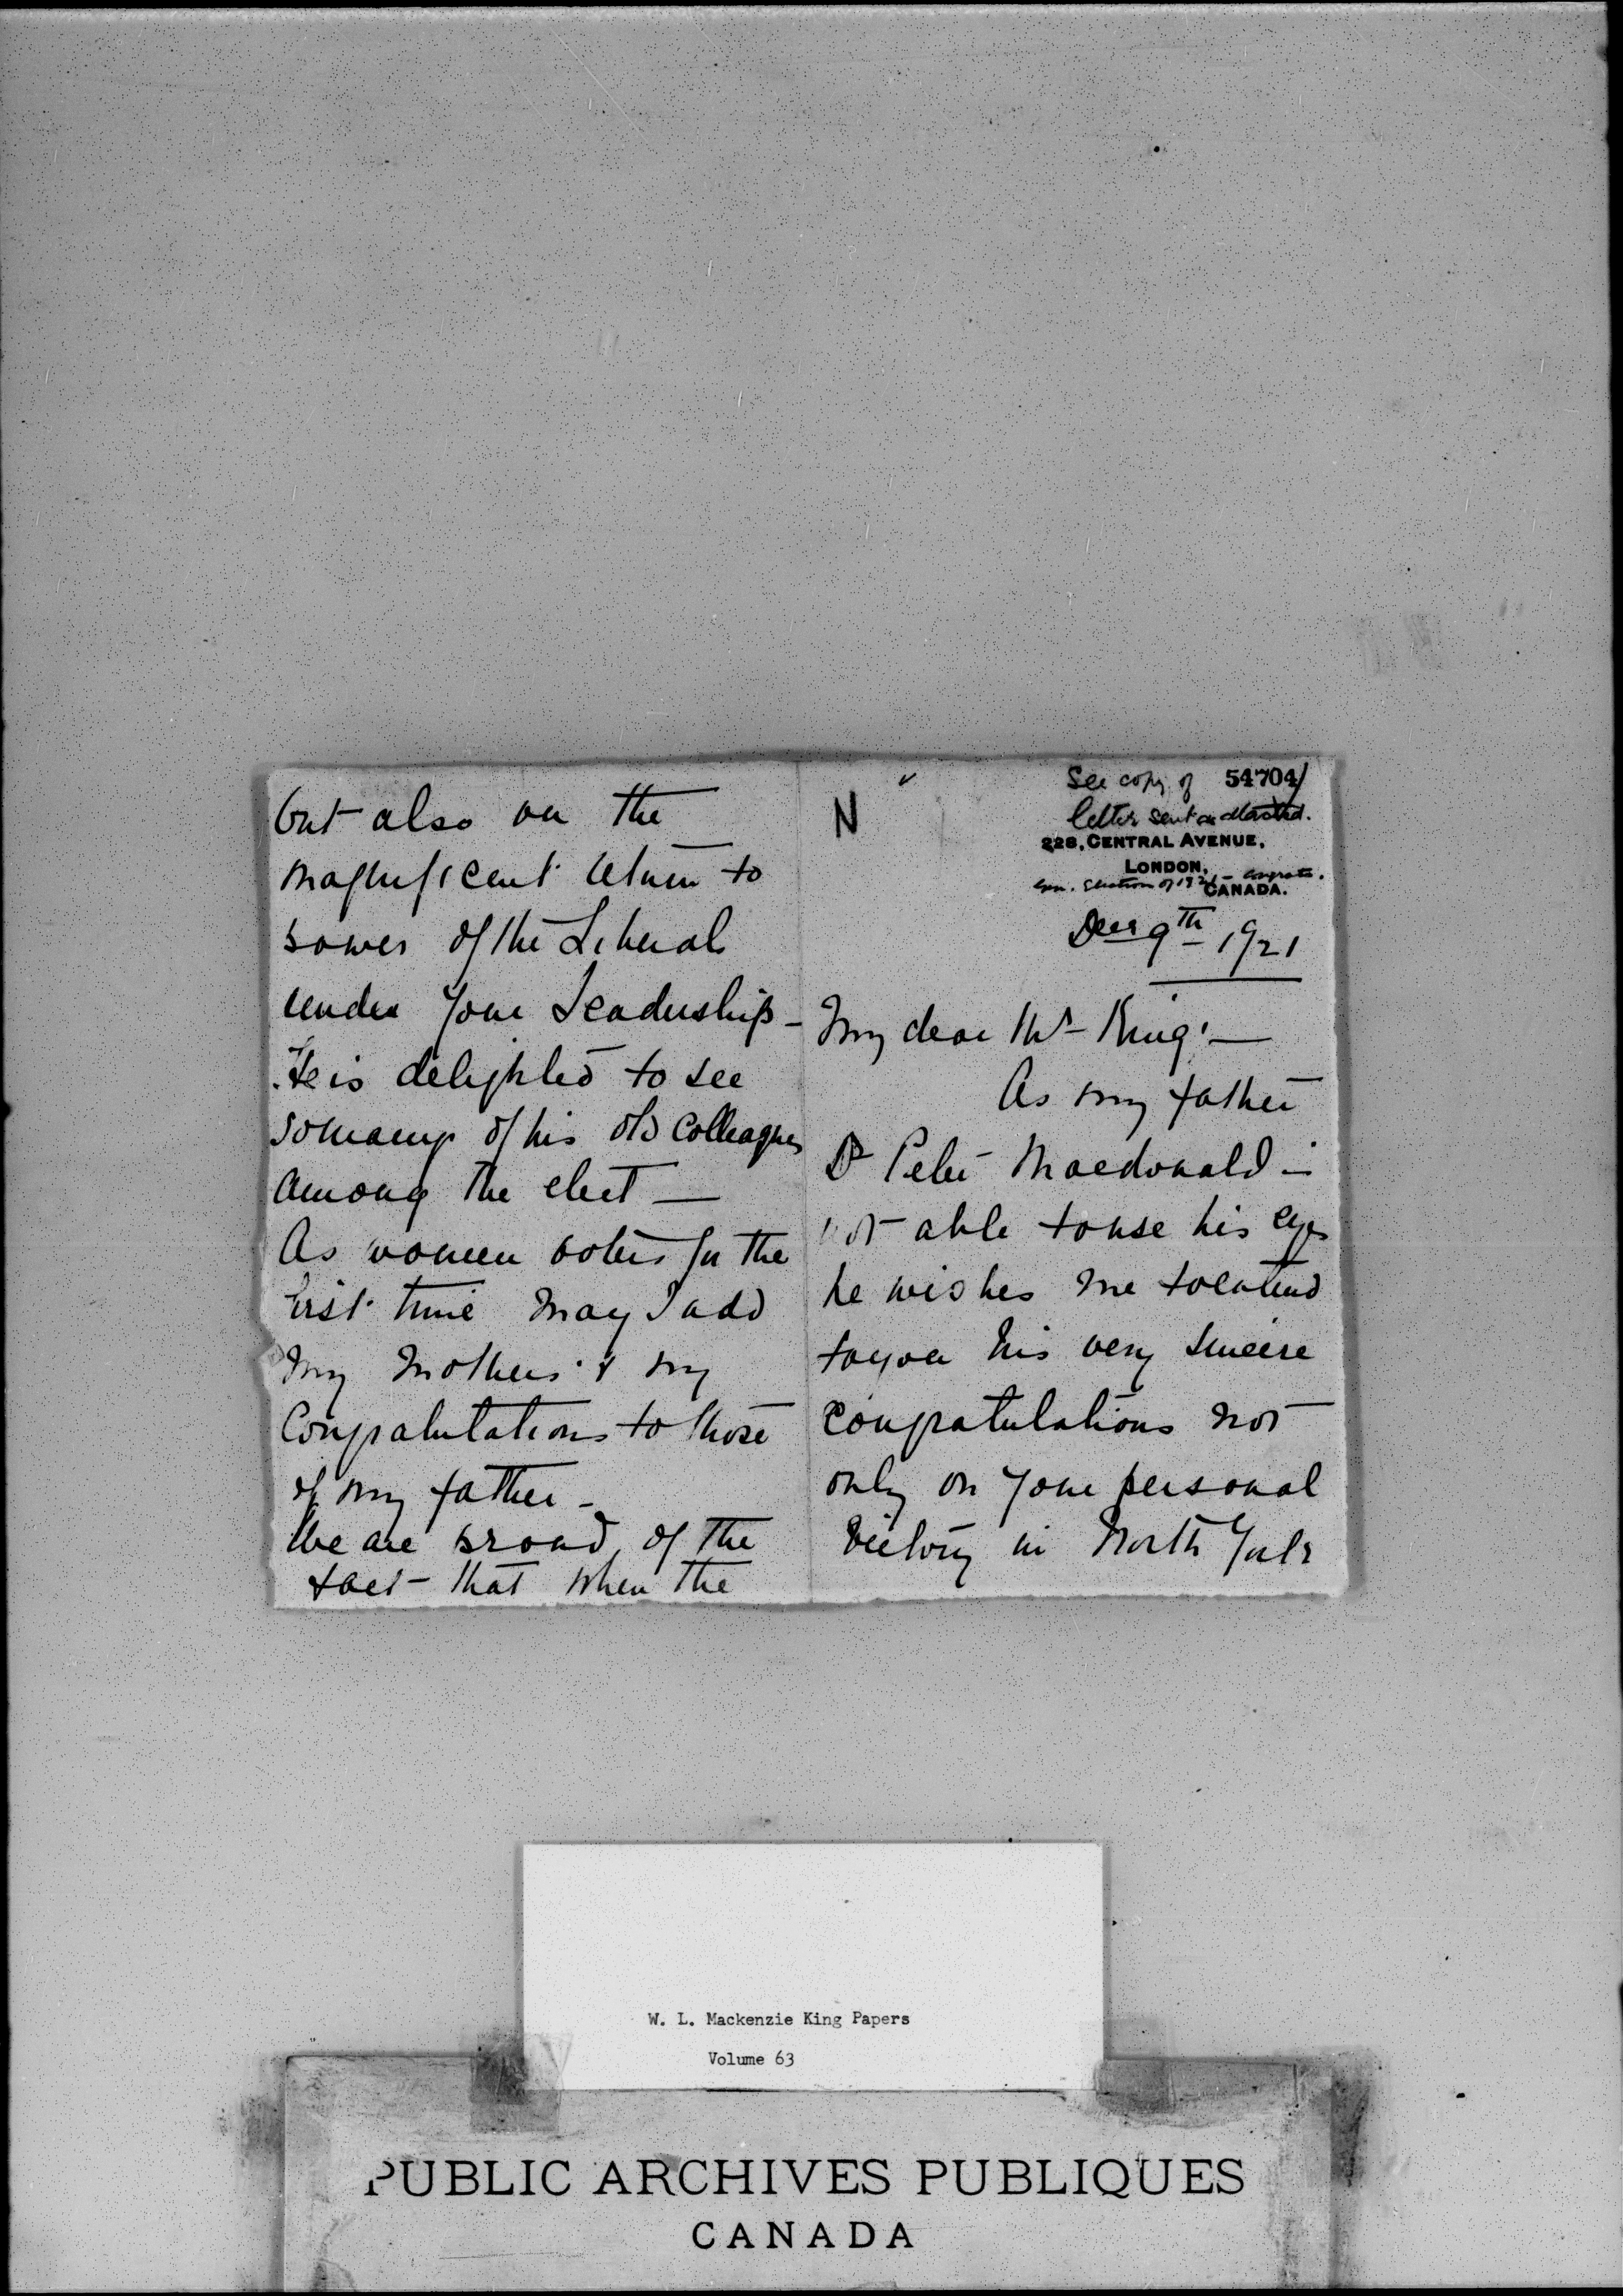 N
See copy of 54704
letter sent as attached.
228, CENTRAL AVENUE,
LONDON,
Gen. Election of 1921 - Congrats.
CANADA.
Decr 9th 1921
My dear Mr King! —
As my father
Dr Peter Macdonald is
not able to use his eyes
he wishes me to extend
to you his very sincere
congratulations not
only on your personal
Victory in North York
but also on the
magnificent return to
power of the Liberals
under your Leadership -
He is delighted to see
so many of his old Colleagues
among the elect —
As women voters for the
first time may I add
my mother's & my
Congratulations to those
of my father -
We are proud of the
fact - that when the
W. L. Mackenzie King Papers
Volume 63
PUBLIC ARCHIVES PUBLIQUES
CANADA